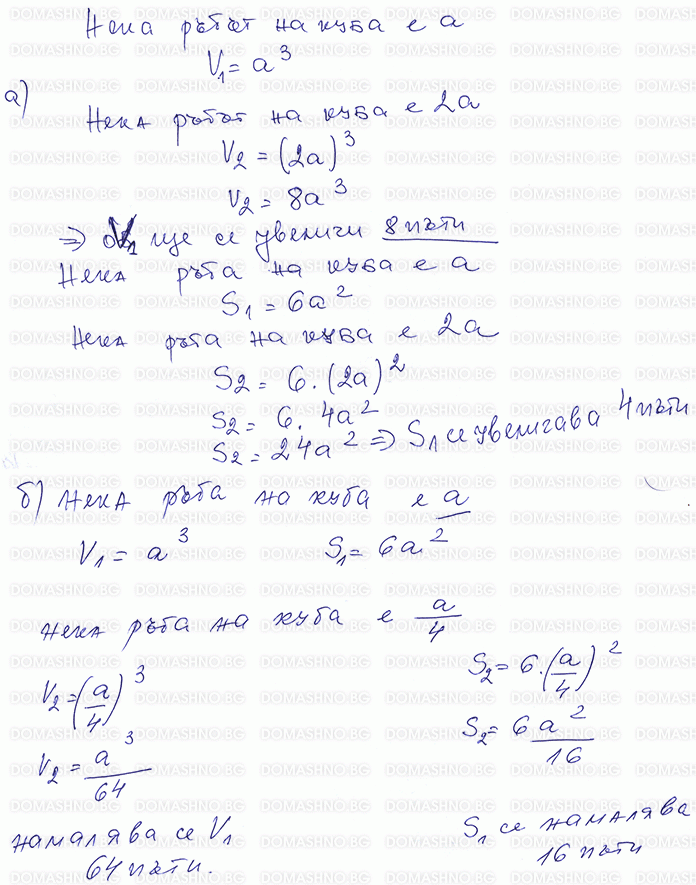 Нека ръбът на куба е a
V₁ = a³
а)
Нека ръбът на куба е 2a
V₂ = (2a)³
V₂ = 8a³
⇒ V₁ ще се увеличи 8 пъти
Нека ръба на куба е a
S₁ = 6a²
Нека ръба на куба е 2a
S₂ = 6.(2a)²
S₂ = 6. 4a²
S₂ = 24a² ⇒ S₁ се увеличава 4 пъти
б) Нека ръба на куба е a
V₁ = a³ S₁ = 6a²
нека ръба на куба е a/4
V₂ = (a/4)³ S₂ = 6.(a/4)²
V₂ = a³/64 S₂ = 6 a²/16
намалява се V₁ 64 пъти.
S₁ се намалява 16 пъти
DOMASHNO.BG